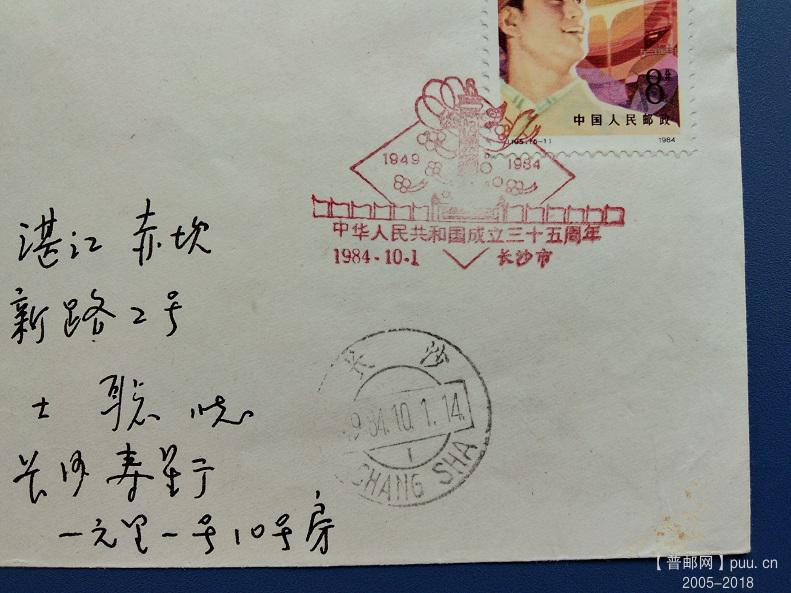 8分
中国人民邮政
J.105.(6-1) 1984
1949 1984
中华人民共和国成立三十五周年
1984.10.1 长沙市
湛江 赤坎
新路2号
士
长沙 CHANG SHA
1984.10.1.14.
长沙寿星
一号10号房
【普邮网】puu.cn
2005-2018